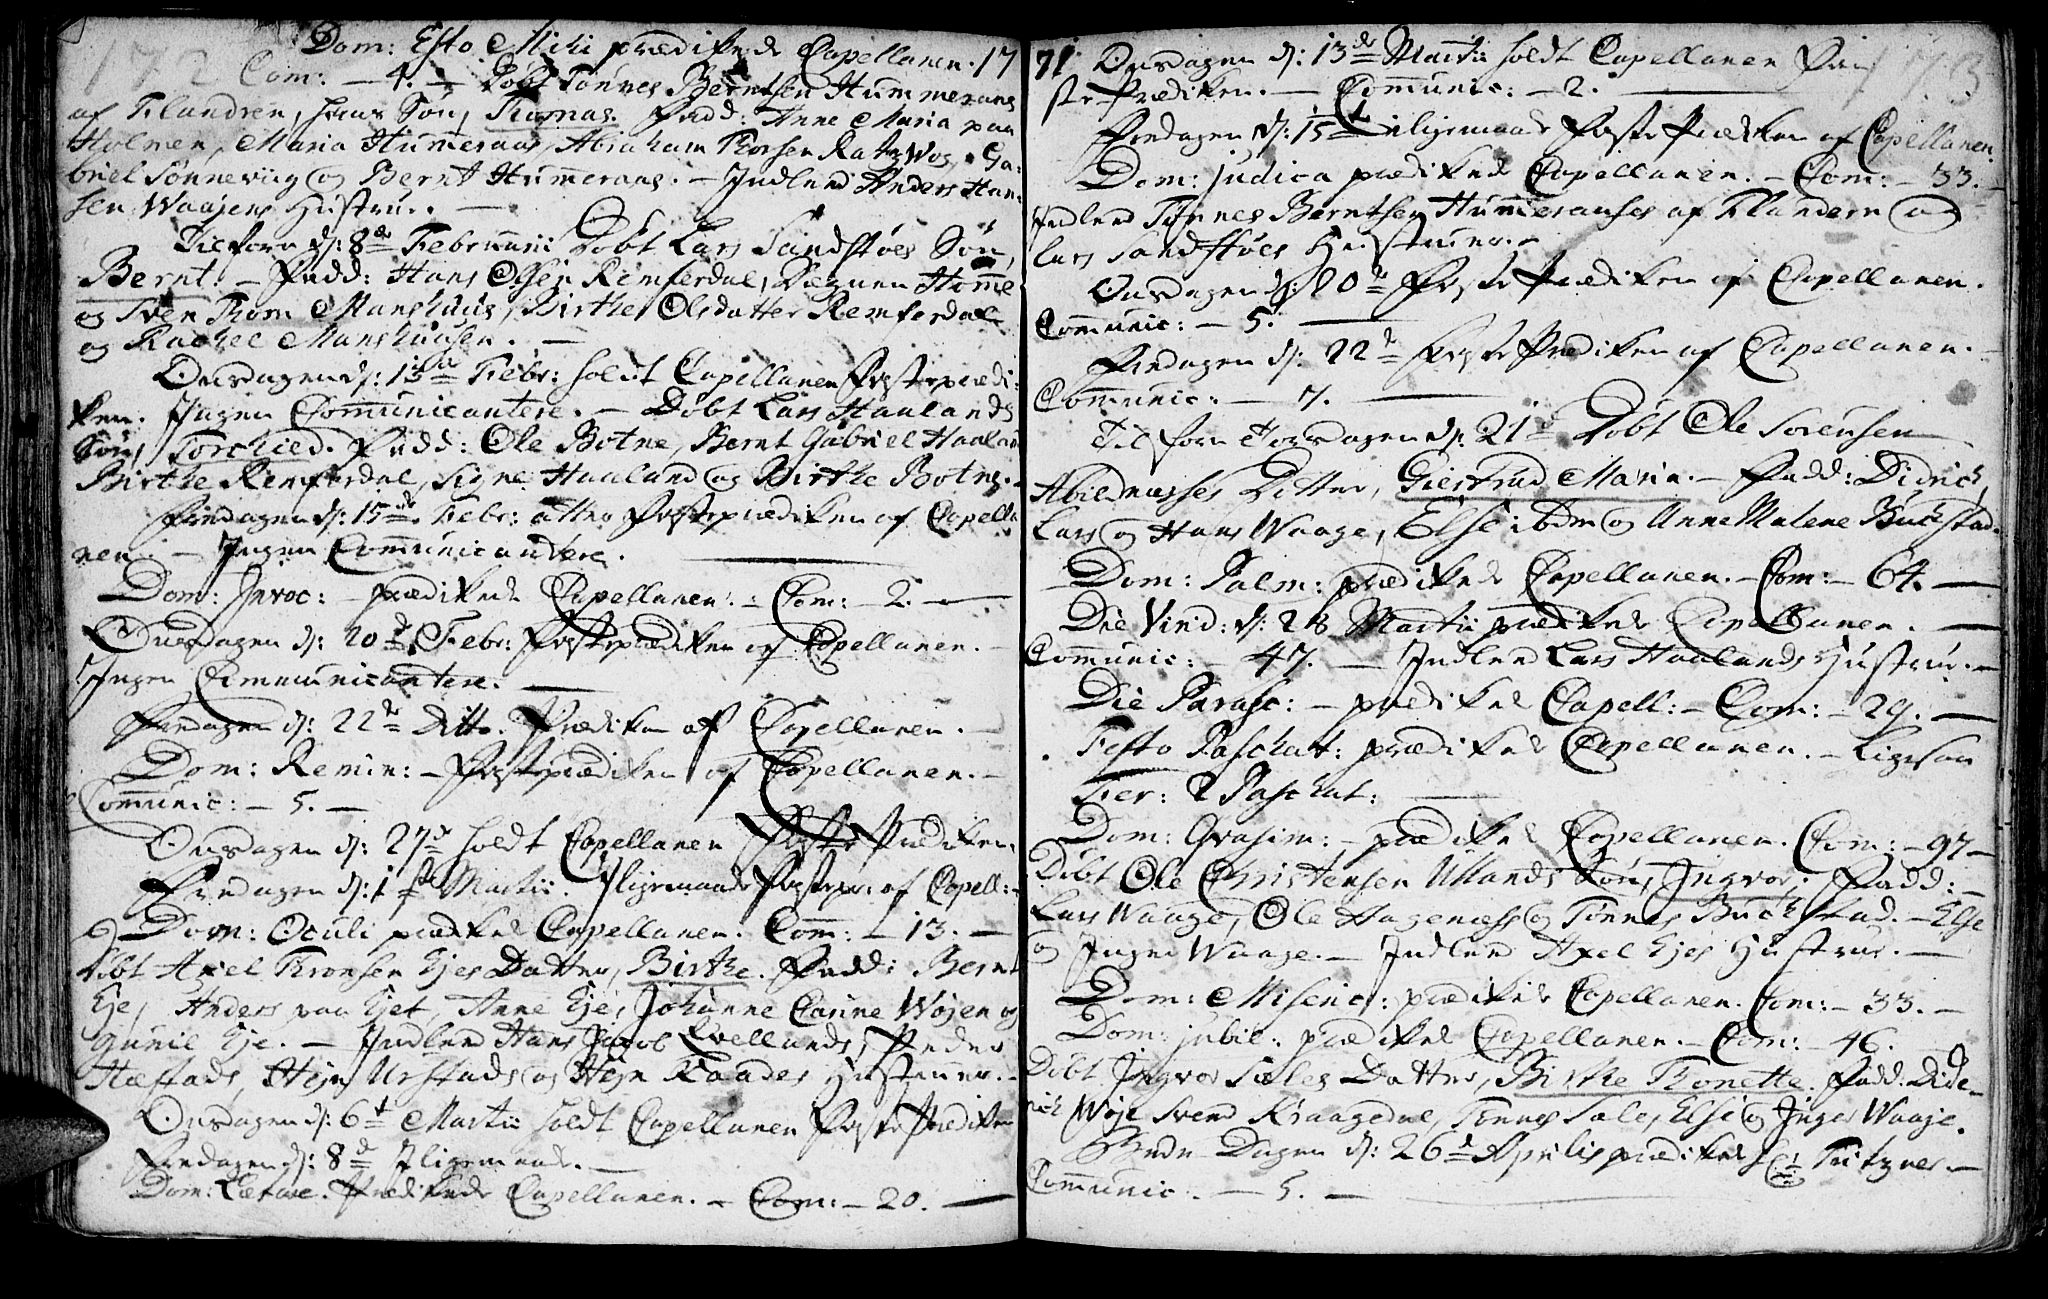 172
Dom: Esto Mihi prædikede Capellanen. 17
Com: – 4. – Døbt Tønnes Berntsen Hummeraas
af Flandren, hans Søn, Thomas. Fadd: Anne Maria paa
Holmen, Maria Hummeraas, Abraham Thorsen Ratzwog, Ga-
briel Sønneviig og Bernt Hummeraas. – Indled Anders Han-
sen Waajens Hustru. –
Tilforn d: 8de Februarii Døbt Lars Sandstøes Søn,
Bernt. – Fadd: Hans Olsen Remferdal, Degnen Homme
og Sven Thom Manshuus, Birthe Olsdatter Remferdal
og Rachel Manshuusen. –
Onsdagen d: 13de Febr: holdt Capellanen Fasteprædi-
ken. Ingen Communicantere. – Døbt Lars Haalands
Søn, Torchied. Fadd: Ole Botne, Bernt Gabriel Haaland
Birthe Remferdal, Signe Haaland og Birthe Botne. –
Fredagen d: 15de Febr: atter Fasteprædiken af Capella-
nen. – Ingen Communicantere.
Dom: Invoc: – prædikede Capellanen. – Com: – 2. –
Onsdagen d: 20de Febr: Fasteprædiken af Capellanen. –
Ingen Communicantere. –
Fredagen d: 22de Ditto. Prædiken af Capellanen. –
Dom: Remin: – Fasteprædiken af Capellanen. –
Communic: – 5. –
Onsdagen d: 27de holdt Capellanen Faste Prædiken.
Fredagen d: 1ste Martii. Iligemaade Fastepr: af Capell: –
Dom: Oculi prædiked Capellanen. Com: – 13. –
Døbt Axel Thronsen Ejes Datter, Birthe. Fadd: Bernt
Eje, Anders paa Ejet, Anne Eje, Johanne Carine Wøjen og
Gunil Eje. – Indled Hans Jacob Qvellands, Peder
Hæstads, Stejn Urstads og Stejn Raades Hustruer. –
Onsdagen d: 6te Martii holdt Capellanen Faste Prædiken
Fredagen d: 8de Iligemaade. –
Dom: Lætare. Prædikede Capellanen. – Com: – 20. –
71. Onsdagen d: 13de Martii holdt Capellanen Fa- 173
ste-Prædiken. – Communic: – 2. –
Fredagen d: 15de Iligemaade Faste Prædiken af Capellanen.
Dom: Judica prædikede Capellanen. – Com: – 33. –
Indled Tønnes Berntsen Hummeraases af Flandern og
Lars Sandstøes Hustruer. –
Onsdagen d: 20de Faste Prædiken af Capellanen.
Communic: – 5. –
Fredagen d: 22de Faste Prædiken af Capellanen. –
Communic: – 7. –
Tilforn Torsdagen d: 21de Døbt Ole Sørensen
Abildnæsses Datter, Giertrud Maria. – Fadd: Didrich,
Lars og Hans Waage, Else ibdm og Anne Malene Buchstad.
Dom: Palm: prædikede Capellanen. – Com: – 64. –
Die Virid: d: 28 Martii prædikede Capellanen. –
Communic: – 47. – Indled Lars Haalands Hustrue. –
Die Parasc: – prædiked Capell: – Com: – 29. –
Festo Paschat: prædikede Capellanen. – Ligesaa
Fer: 2 Paschat: –
Dom: Qvasim: – prædiked Capellanen. Com: – 97 –
Døbt Ole Christensen Ullands Søn, Ingvor. Fadd: –
Lars Waage, Ole Hagenæss og Tønnes Buchstad. – Else
og Inger Waage. – Indled Axel Ejes Hustrue. –
Dom: Miseric: prædikede Capellanen. Com: – 33. –
Dom: Jubil: prædiked Capellanen. – Com: – 46.
Døbt Ingvor Sales Datter, Birthe Thonette. Fadd: Dide-
rich Wøje Svend Kraagedal, Tønnes Sales, Else og Inger Waaje.
Bede Dagen d: 26de Aprilis prædikede Hr: Fritzner. –
Communic. – 5. –